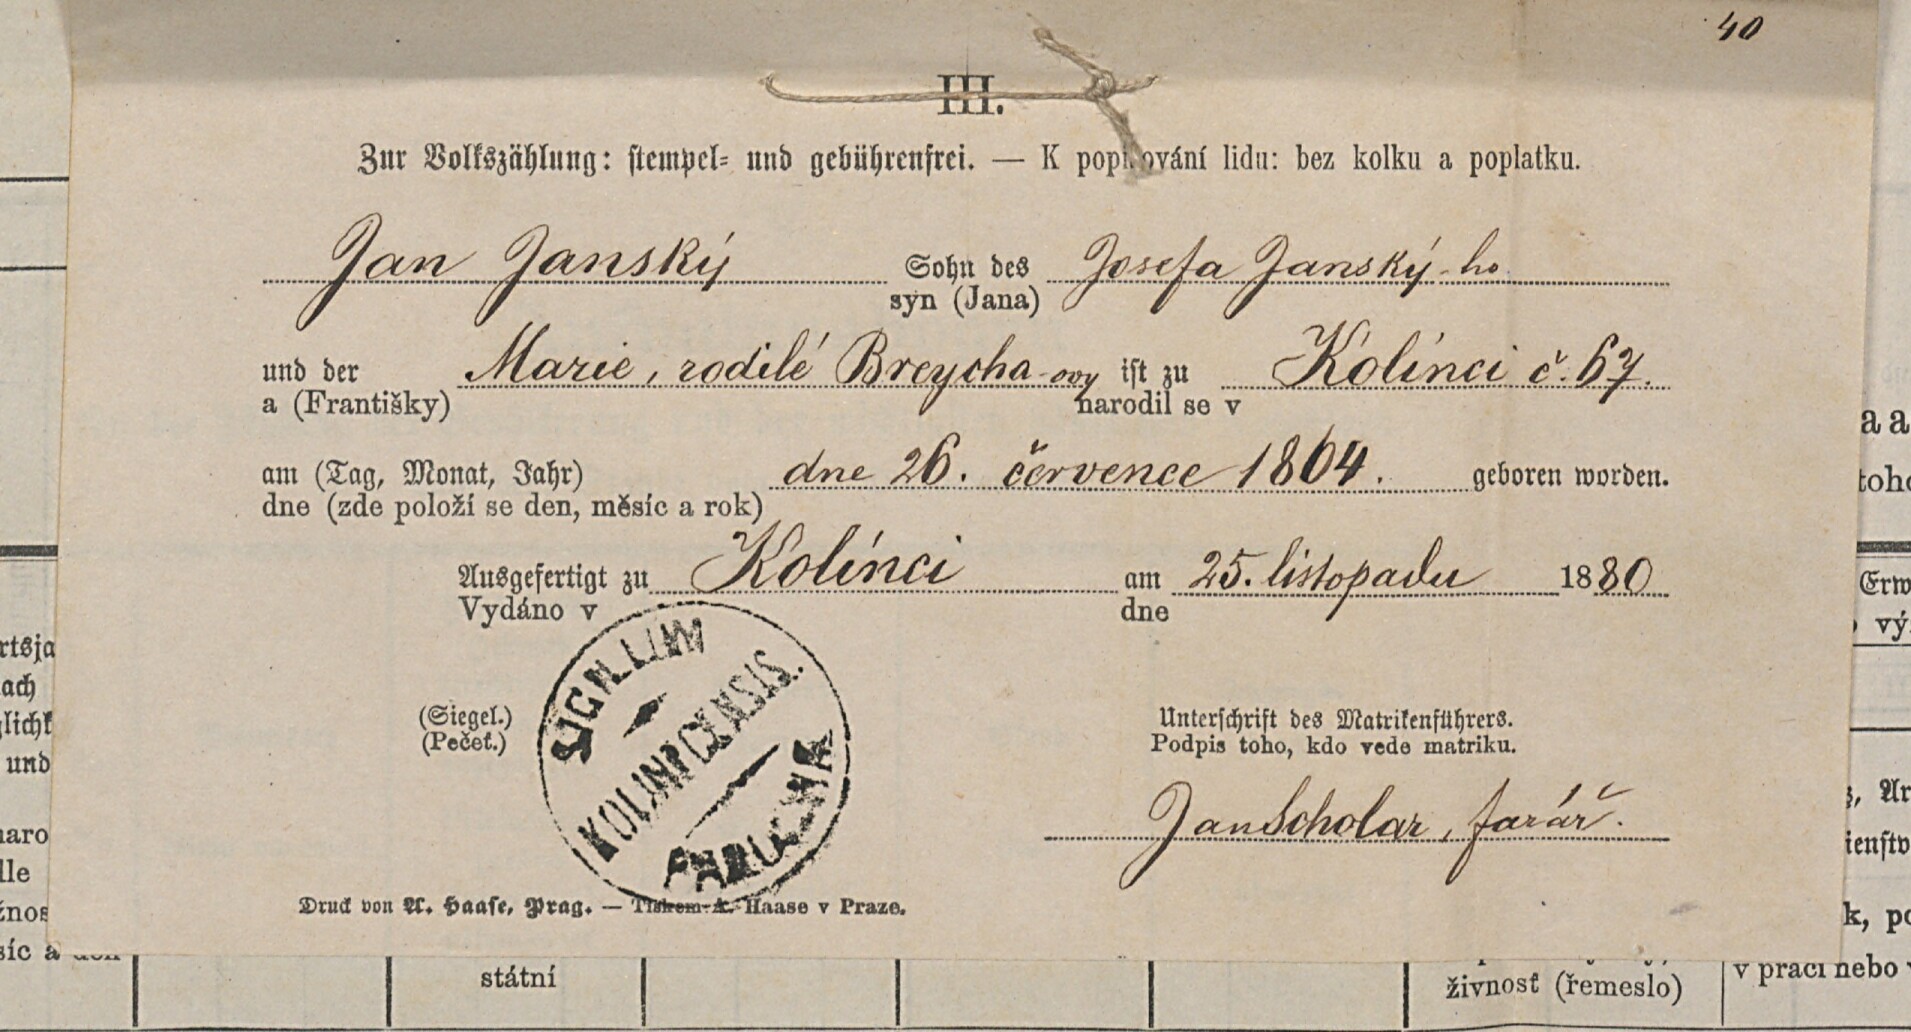 40
III.
Zur Volkszählung: stempel= und gebührenfrei. — K popisování lidu: bez kolku a poplatku.
Jan Janský Sohn des Josefa Janský-ho
syn (Jana)
und der Marie, rodilé Breycha-ovy ist zu Kolínci č. 67.
a (Františky) narodil se v
am (Tag, Monat, Jahr) dne 26. července 1864. geboren worden.
dne (zde položí se den, měsíc a rok)
Ausgefertigt zu Kolínci am 25. listopadu 1880
Vydáno v dne
SIGILLUM
KOLINECENSIS.
(Siegel.) Unterschrift des Matrikenführers.
(Pečeť.) Podpis toho, kdo vede matriku.
Jan Scholar, farář.
Druck von A. Haase, Prag. — Tiskem A. Haase v Praze.
a a
toho
Erw
vý
rtsja
ach
glich
und
naro
dle
žnos
síc a den
k, po
státní
živnosť (řemeslo)
v práci nebo v